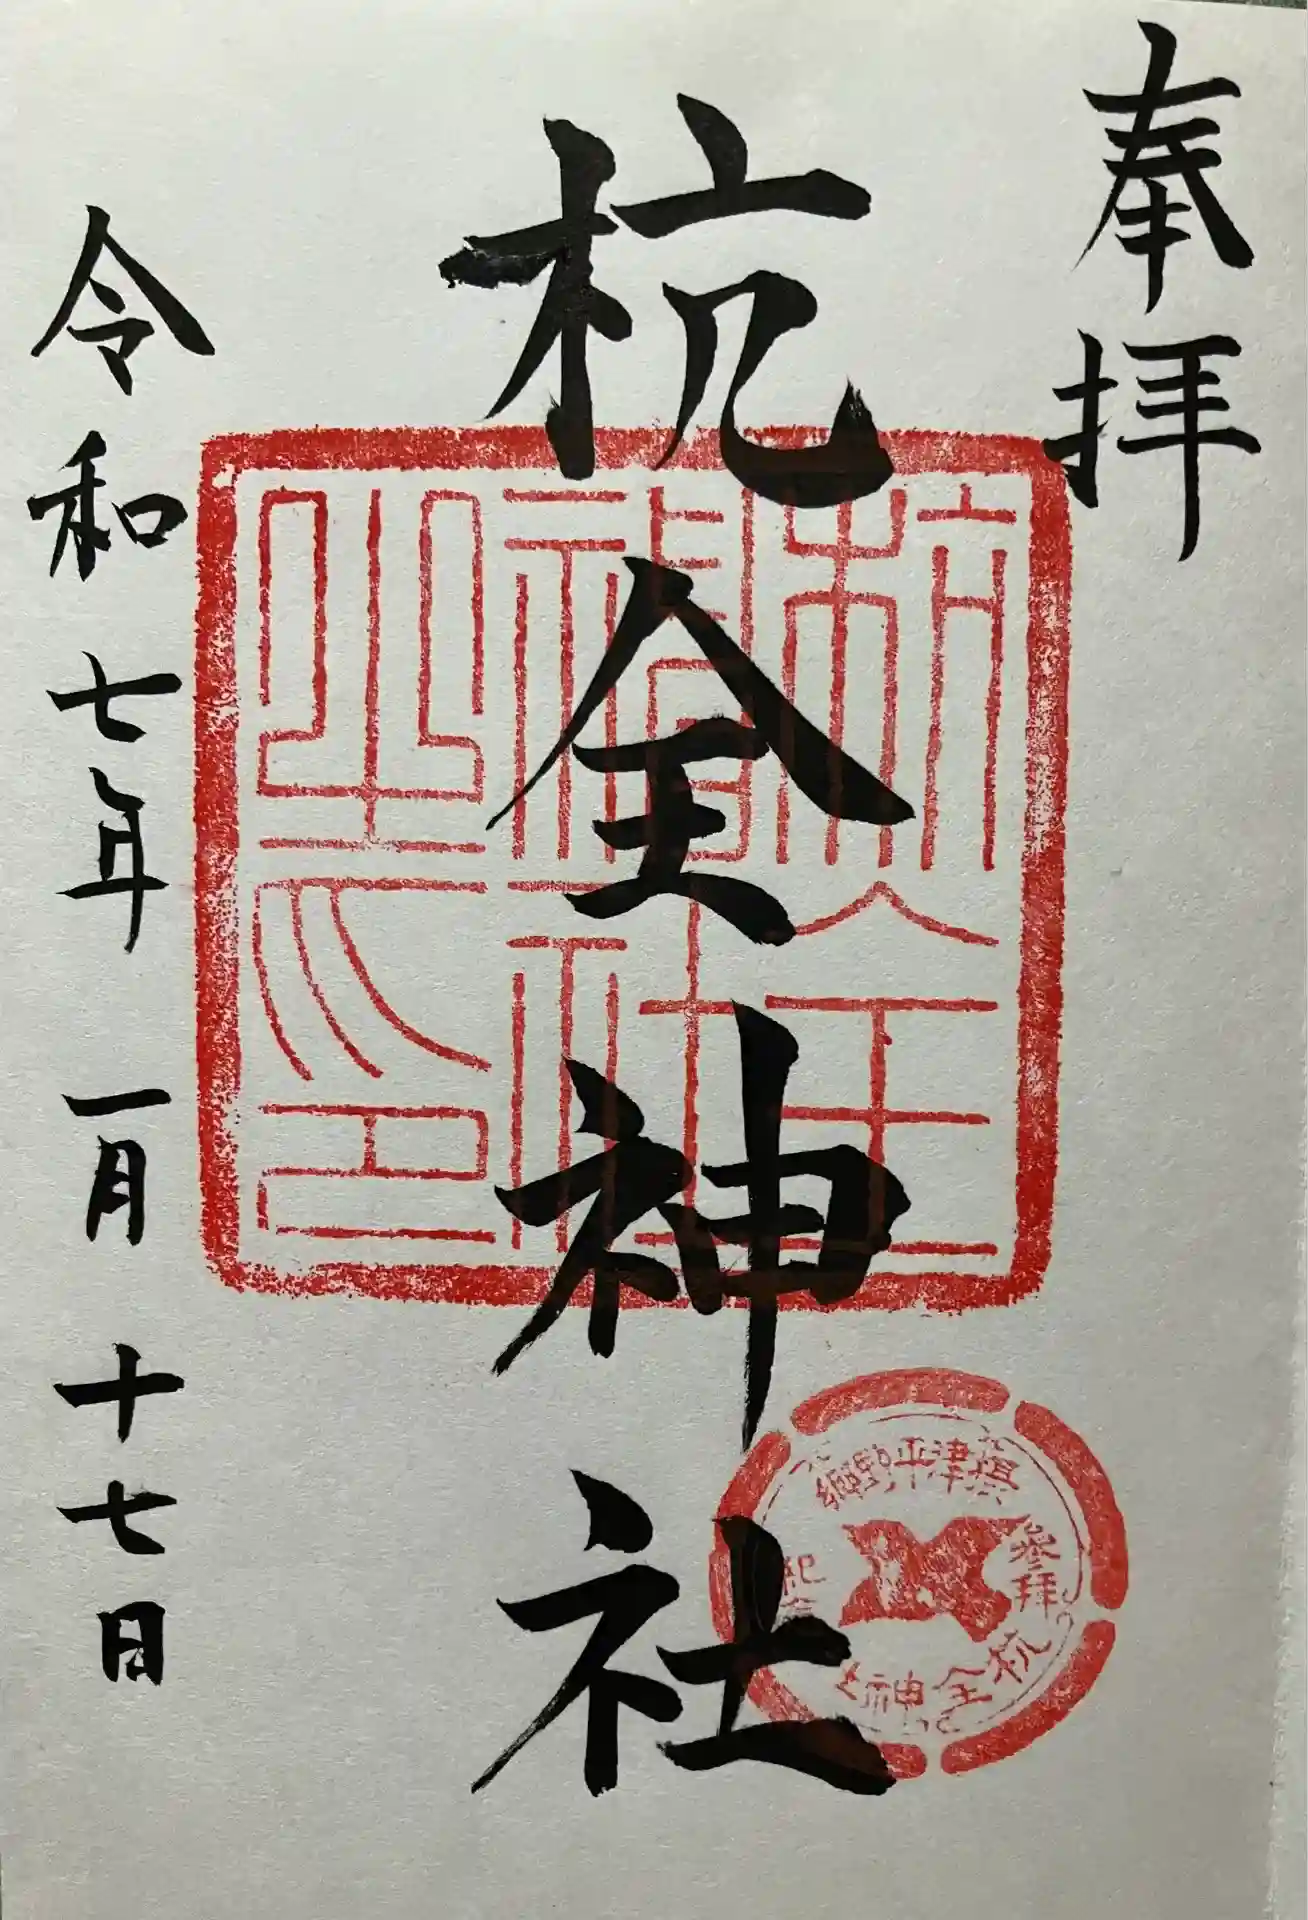 奉拝
杭全神社
令和七年一月十七日
杭全神社之印
攝津平野郷
参拜
紀念
杭全神社